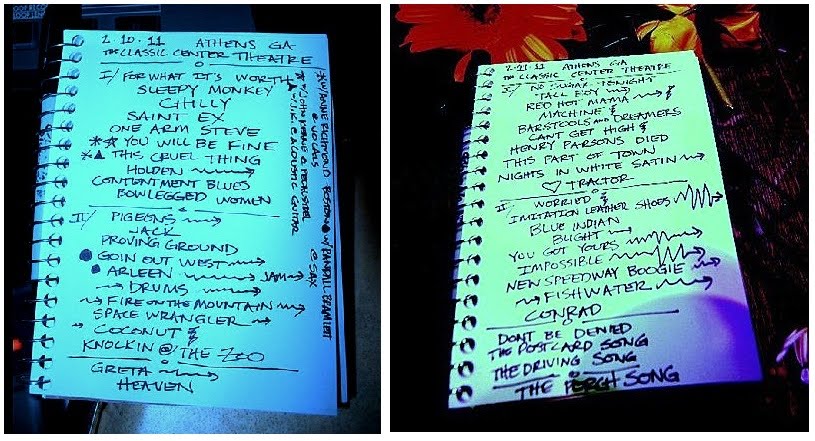 2.10.11 ATHENS GA
THE CLASSIC CENTER THEATRE
I/ FOR WHAT IT'S WORTH
SLEEPY MONKEY
CHILLY
SAINT EX
ONE ARM STEVE
YOU WILL BE FINE
THIS CRUEL THING
HOLDEN
CONTENTMENT BLUES
BOWLEGGED WOMEN
II/ PIGEONS
JACK
PROVING GROUND
GOIN OUT WEST
ARLEEN JAM
DRUMS
FIRE ON THE MOUNTAIN
SPACE WRANGLER
COCONUT
KNOCKIN @ THE ZOO
GRETA
HEAVEN
W/ ANNE RICHMOND BOSTON
@ VOCALS
W/ JOHN KEANE @ PEDAL STEEL
W/ J.C. @ ACOUSTIC GUITAR
W/ RANDALL BRAMLETT
@ SAX
2.11.11 ATHENS GA
THE CLASSIC CENTER THEATRE
I/ NO SUGAR TONIGHT
TALL BOY
RED HOT MAMA
MACHINE
BARSTOOLS AND DREAMERS
CAN'T GET HIGH
HENRY PARSONS DIED
THIS PART OF TOWN
NIGHTS IN WHITE SATIN
TRACTOR
II/ WORRIED
IMITATION LEATHER SHOES
BLUE INDIAN
BLIGHT
YOU GOT YOURS
IMPOSSIBLE
NEW SPEEDWAY BOOGIE
FISHWATER
CONRAD
DONT BE DENIED
THE POSTCARD SONG
THE DRIVING SONG
THE PERCH SONG